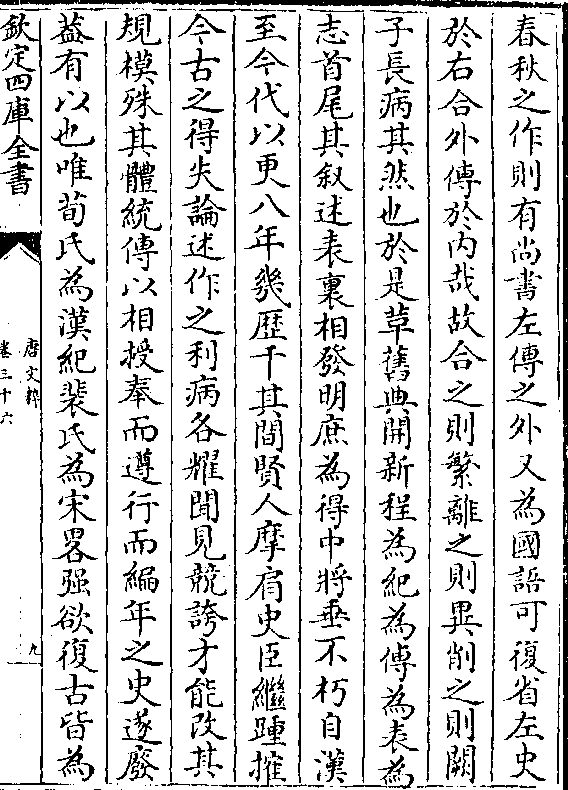 春秋之作則有尚書左傳之外又為國語可復省左史
於右合外傳於内哉故合之則繁離之則異削之則闕
子長病其然也於是草舊典開新程為紀為傳為表為
志首尾其叙述表裏相發明庶為得中將垂不朽自漢
至今代以更八年幾歴千其間賢人摩肩史臣繼踵推
今古之得失論述作之利病各耀聞見競誇才能改其
規模殊其體統傳以相授奉而遵行而編年之史遂廢
葢有以也唯荀氏為漢紀裴氏為宋畧强欲復古皆為
欽定四庫全書
唐文粹
卷三十六
九